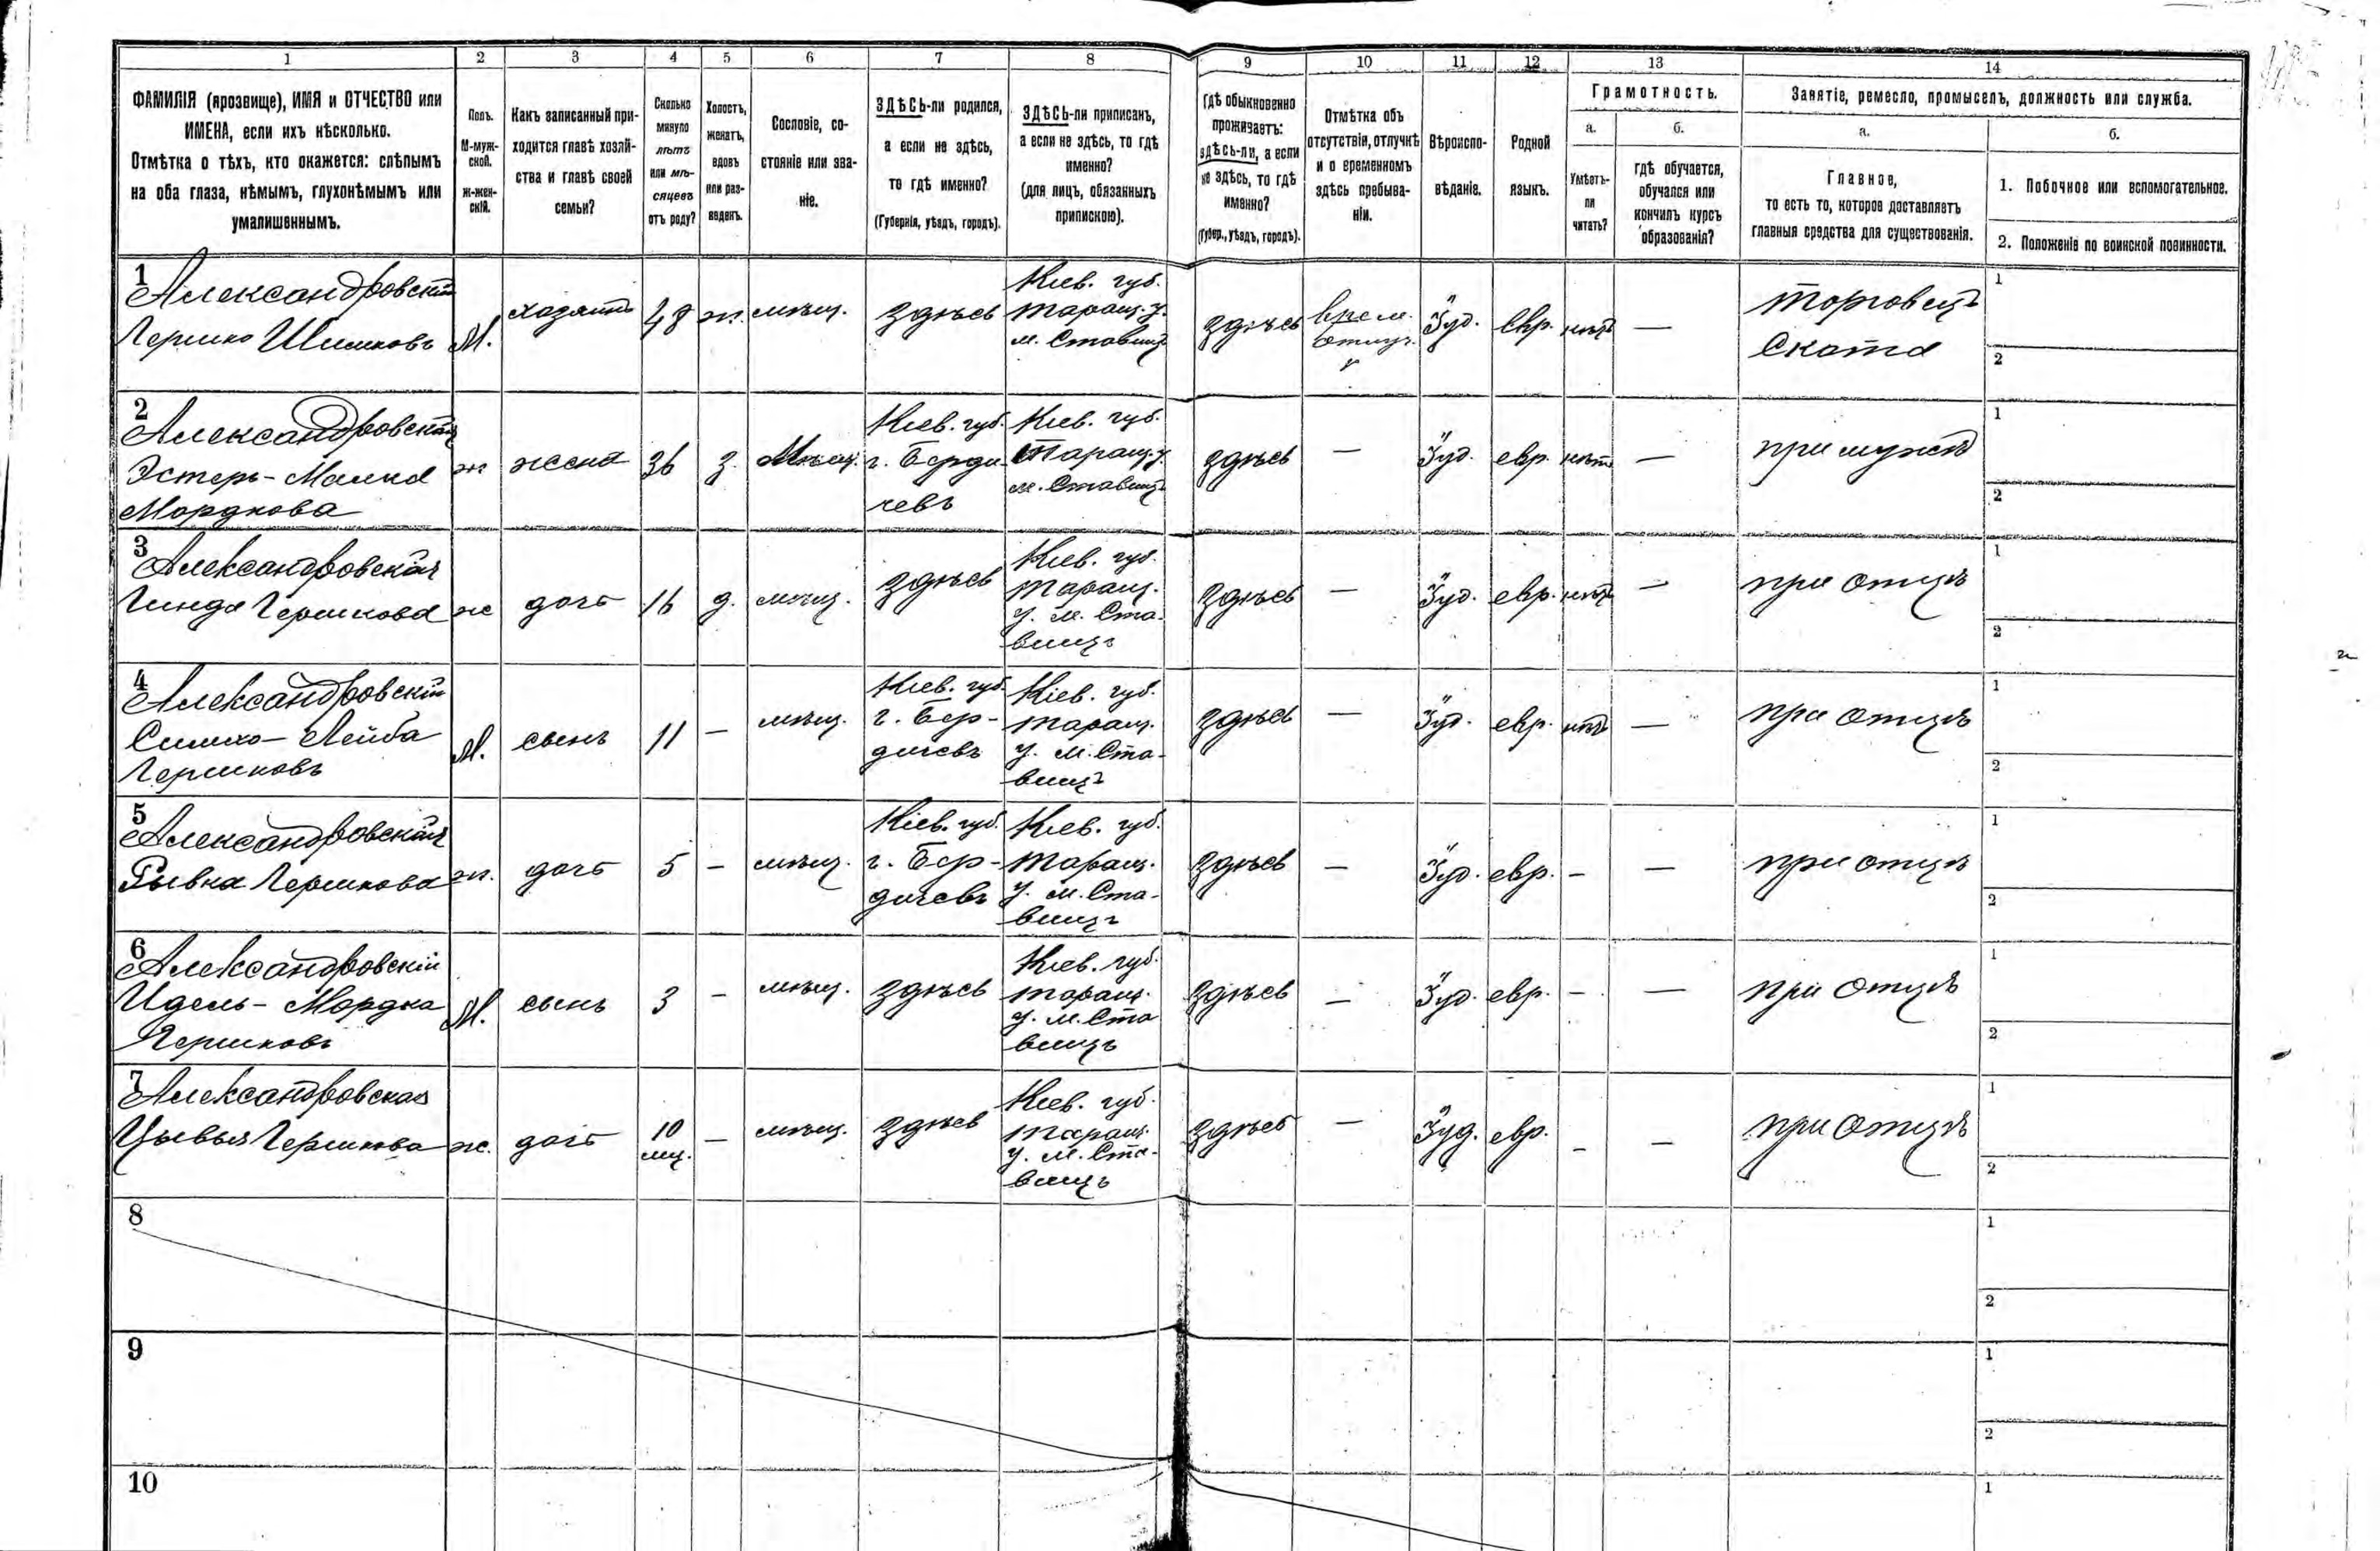 1 2 3 4 5 6 7 8 9 10 11 12 13 14
ФАМИЛІЯ (прозвище), ИМЯ и ОТЧЕСТВО или
ИМЕНА, если ихъ нѣсколько.
Отмѣтка о тѣхъ, кто окажется: слѣпымъ
на оба глаза, нѣмымъ, глухонѣмымъ или
умалишеннымъ.
Полъ.
М-муж-
ской.
ж-жен-
скій.
Какъ записанный при-
ходится главѣ хозяй-
ства и главѣ своей
семьи?
Сколько
минуло
лѣтъ
или мѣ-
сяцевъ
отъ роду?
Холостъ,
женатъ,
вдовъ
или раз-
веденъ.
Сословіе, со-
стояніе или зва-
ніе.
ЗДѢСЬ-ли родился,
а если не здѣсь,
то гдѣ именно?
(Губернія, уѣздъ, городъ).
ЗДѢСЬ-ли приписанъ,
а если не здѣсь, то гдѣ
именно?
(для лицъ, обязанныхъ
припискою).
Гдѣ обыкновенно
проживаетъ:
здѣсь-ли, а если
не здѣсь, то гдѣ
именно?
(Губер., уѣздъ, городъ).
Отмѣтка объ
отсутствіи, отлучкѣ
и о временномъ
здѣсь пребыва-
ніи.
Вѣроиспо-
вѣданіе.
Родной
языкъ.
Грамотность.
а.
Умѣетъ-
ли
читать?
б.
гдѣ обучается,
обучался или
кончилъ курсъ
образованія?
Занятіе, ремесло, промыселъ, должность или служба.
а.
Главное,
то есть то, которое доставляетъ
главныя средства для существованія.
б.
1. Побочное или вспомогательное.
2. Положеніе по воинской повинности.
1
Александровскій
Гершко Шимковъ
М.
хазяинъ
48
ж.
мѣщ.
здѣсь
Кіев. губ.
Таращ. у.
м. Ставищ.
здѣсь
врем.
отлуч.
Іуд.
евр.
нѣтъ
—
Торговец
Скота
1
2
2
Александровская
Эстеръ-Малка
Мордкова
ж
жена
36
з.
Мѣщ.
Кіев. губ.
г. Берди
чевъ
Кіев. губ.
Таращ. у.
м. Ставищ.
здѣсь
—
Іуд.
евр.
нѣтъ
—
при мужѣ
1
2
3
Александровская
Гинда Гершкова
ж
дочь
16
д.
мѣщ.
здѣсь
Кіев. губ.
Таращ.
у. м. Ста-
вищъ
здѣсь
—
Іуд.
евр.
нѣтъ
—
при отцѣ
1
2
4
Александровскій
Симхо-Лейба
Гершковъ
М.
сынъ
11
—
мѣщ.
Кіев. губ.
г. Бер-
дичевъ
Кіев. губ.
Таращ.
у. м. Ста-
вищъ
здѣсь
—
Іуд.
евр.
нѣтъ
—
при отцѣ
1
2
5
Александровская
Рывка Гершкова
ж.
дочь
5
—
мѣщ.
Кіев. губ.
г. Бер-
дичевъ
Кіев. губ.
Таращ.
у. м. Ста-
вищъ
здѣсь
—
Іуд.
евр.
—
—
при отцѣ
1
2
6
Александровскій
Идель-Мордка
Гершковъ
М.
сынъ
3
—
мѣщ.
здѣсь
Кіев. губ.
Таращ.
у. м. Ста
вищъ
здѣсь
—
Іуд.
евр.
—
—
при отцѣ
1
2
7
Александровская
Цывья Гершкова
ж.
дочь
10
мц.
—
мѣщ.
здѣсь
Кіев. губ.
Таращ.
у. м. Ста-
вищъ
здѣсь
—
Іуд.
евр.
—
—
при отцѣ
1
2
8
1
2
9
1
2
10
1